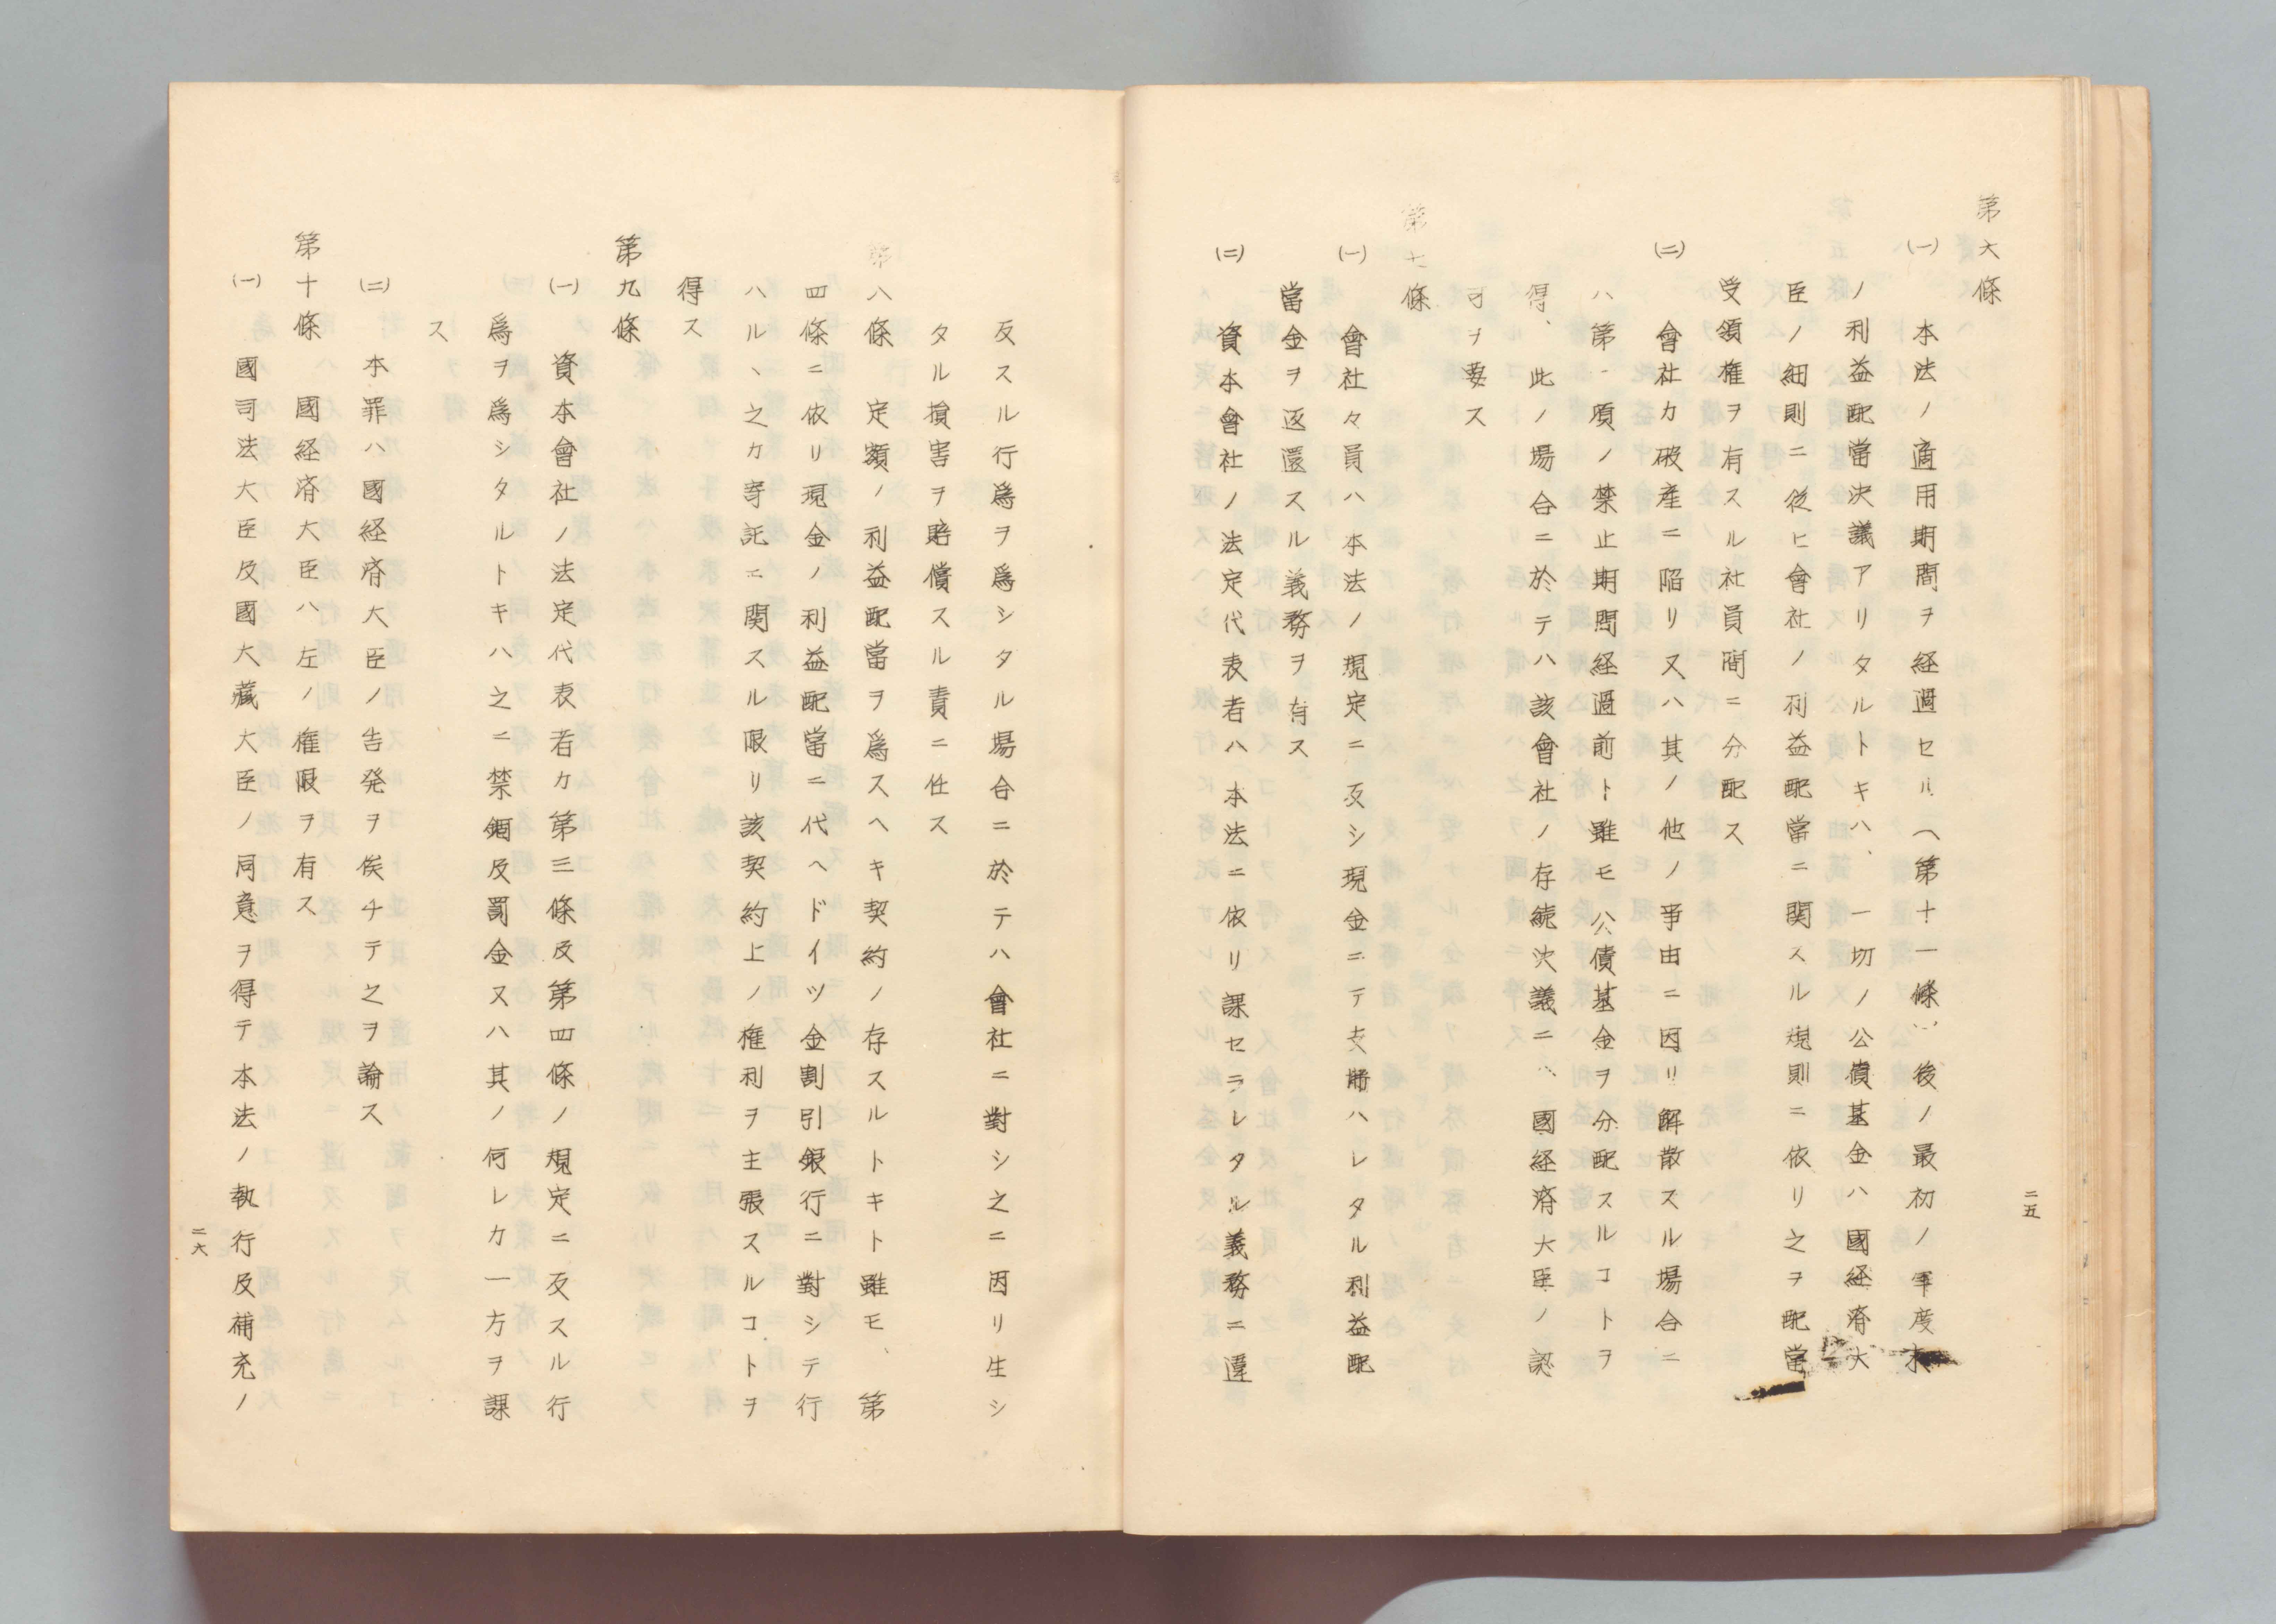 第六條
(一) 本法ノ適用期間ヲ経過セル(第十一條)後ノ最初ノ年度末
ノ利益配當決議アリタルトキハ、一切ノ公債基金ハ國経済大
臣ノ細則ニ従ヒ會社ノ利益配當ニ関スル規則ニ依リ之ヲ配當
受領権ヲ有スル社員間ニ分配ス
(二) 會社カ破産ニ陥リ又ハ其ノ他ノ事由ニ因リ解散スル場合ニ
ハ第一項ノ禁止期間経過前ト雖モ公債基金ヲ分配スルコトヲ
得、此ノ場合ニ於テハ該會社ノ存続決議ニハ國経済大臣ノ認
可ヲ要ス
第七條
(一) 會社々員ハ本法ノ規定ニ反シ現金ニテ支拂ハレタル利益配
當金ヲ返還スル義務ヲ有ス
(二) 資本會社ノ法定代表者ハ本法ニ依リ課セラレタル義務ニ違
二五
反スル行爲ヲ爲シタル場合ニ於テハ會社ニ對シ之ニ因リ生シ
タル損害ヲ賠償スル責ニ任ス
第八條 定額ノ利益配當ヲ爲スヘキ契約ノ存スルトキト雖モ、第
四條ニ依リ現金ノ利益配當ニ代ヘドイツ金割引銀行ニ對シテ行
ハル、之カ寄託ニ関スル限リ該契約上ノ権利ヲ主張スルコトヲ
得ス
第九條
(一) 資本會社ノ法定代表者カ第三條及第四條ノ規定ニ反スル行
爲ヲ爲シタルトキハ之ニ禁錮及罰金又ハ其ノ何レカ一方ヲ課
ス
(二) 本罪ハ國経済大臣ノ告発ヲ俟チテ之ヲ論ス
第十條 國経済大臣ハ左ノ権限ヲ有ス
(一) 國司法大臣及國大藏大臣ノ同意ヲ得テ本法ノ執行及補充ノ
二六